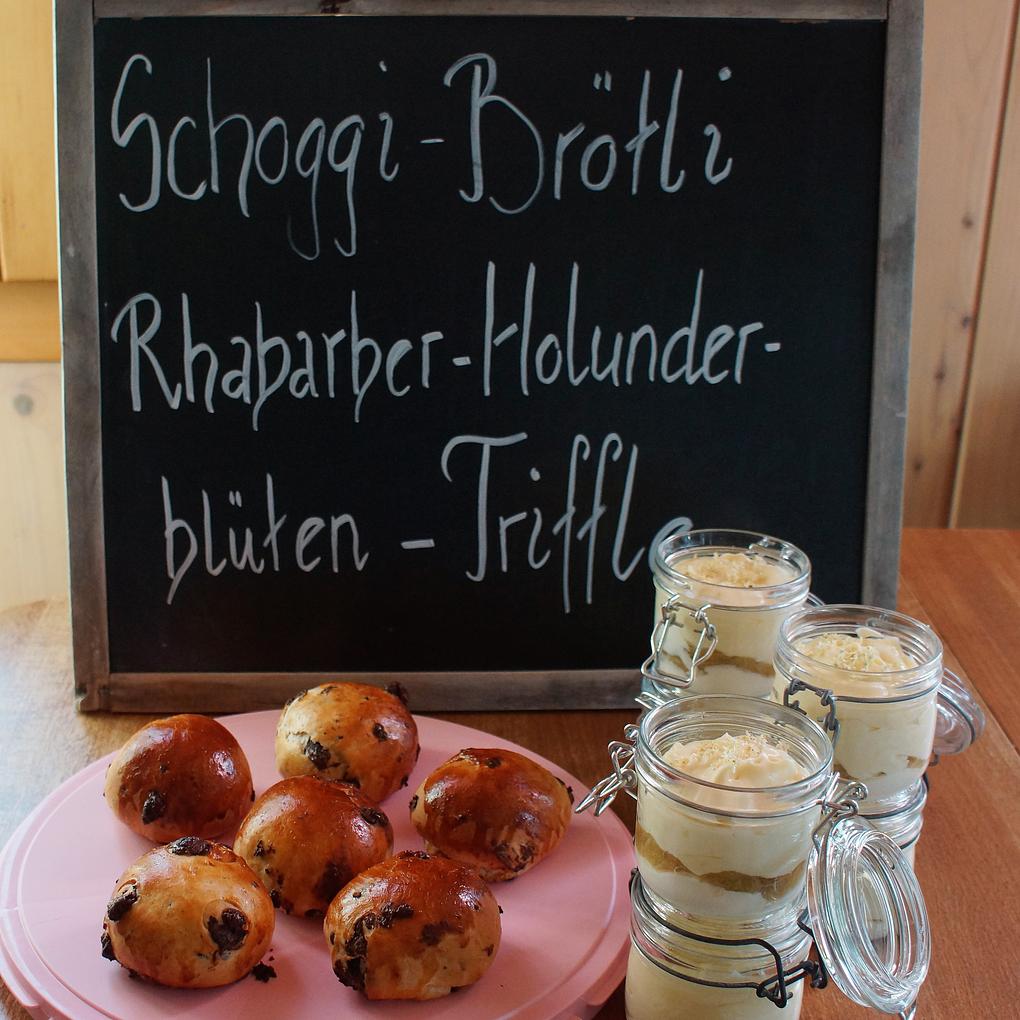 Schoggi-Brötli
Rhabarber-Holunder-
blüten - Triffle